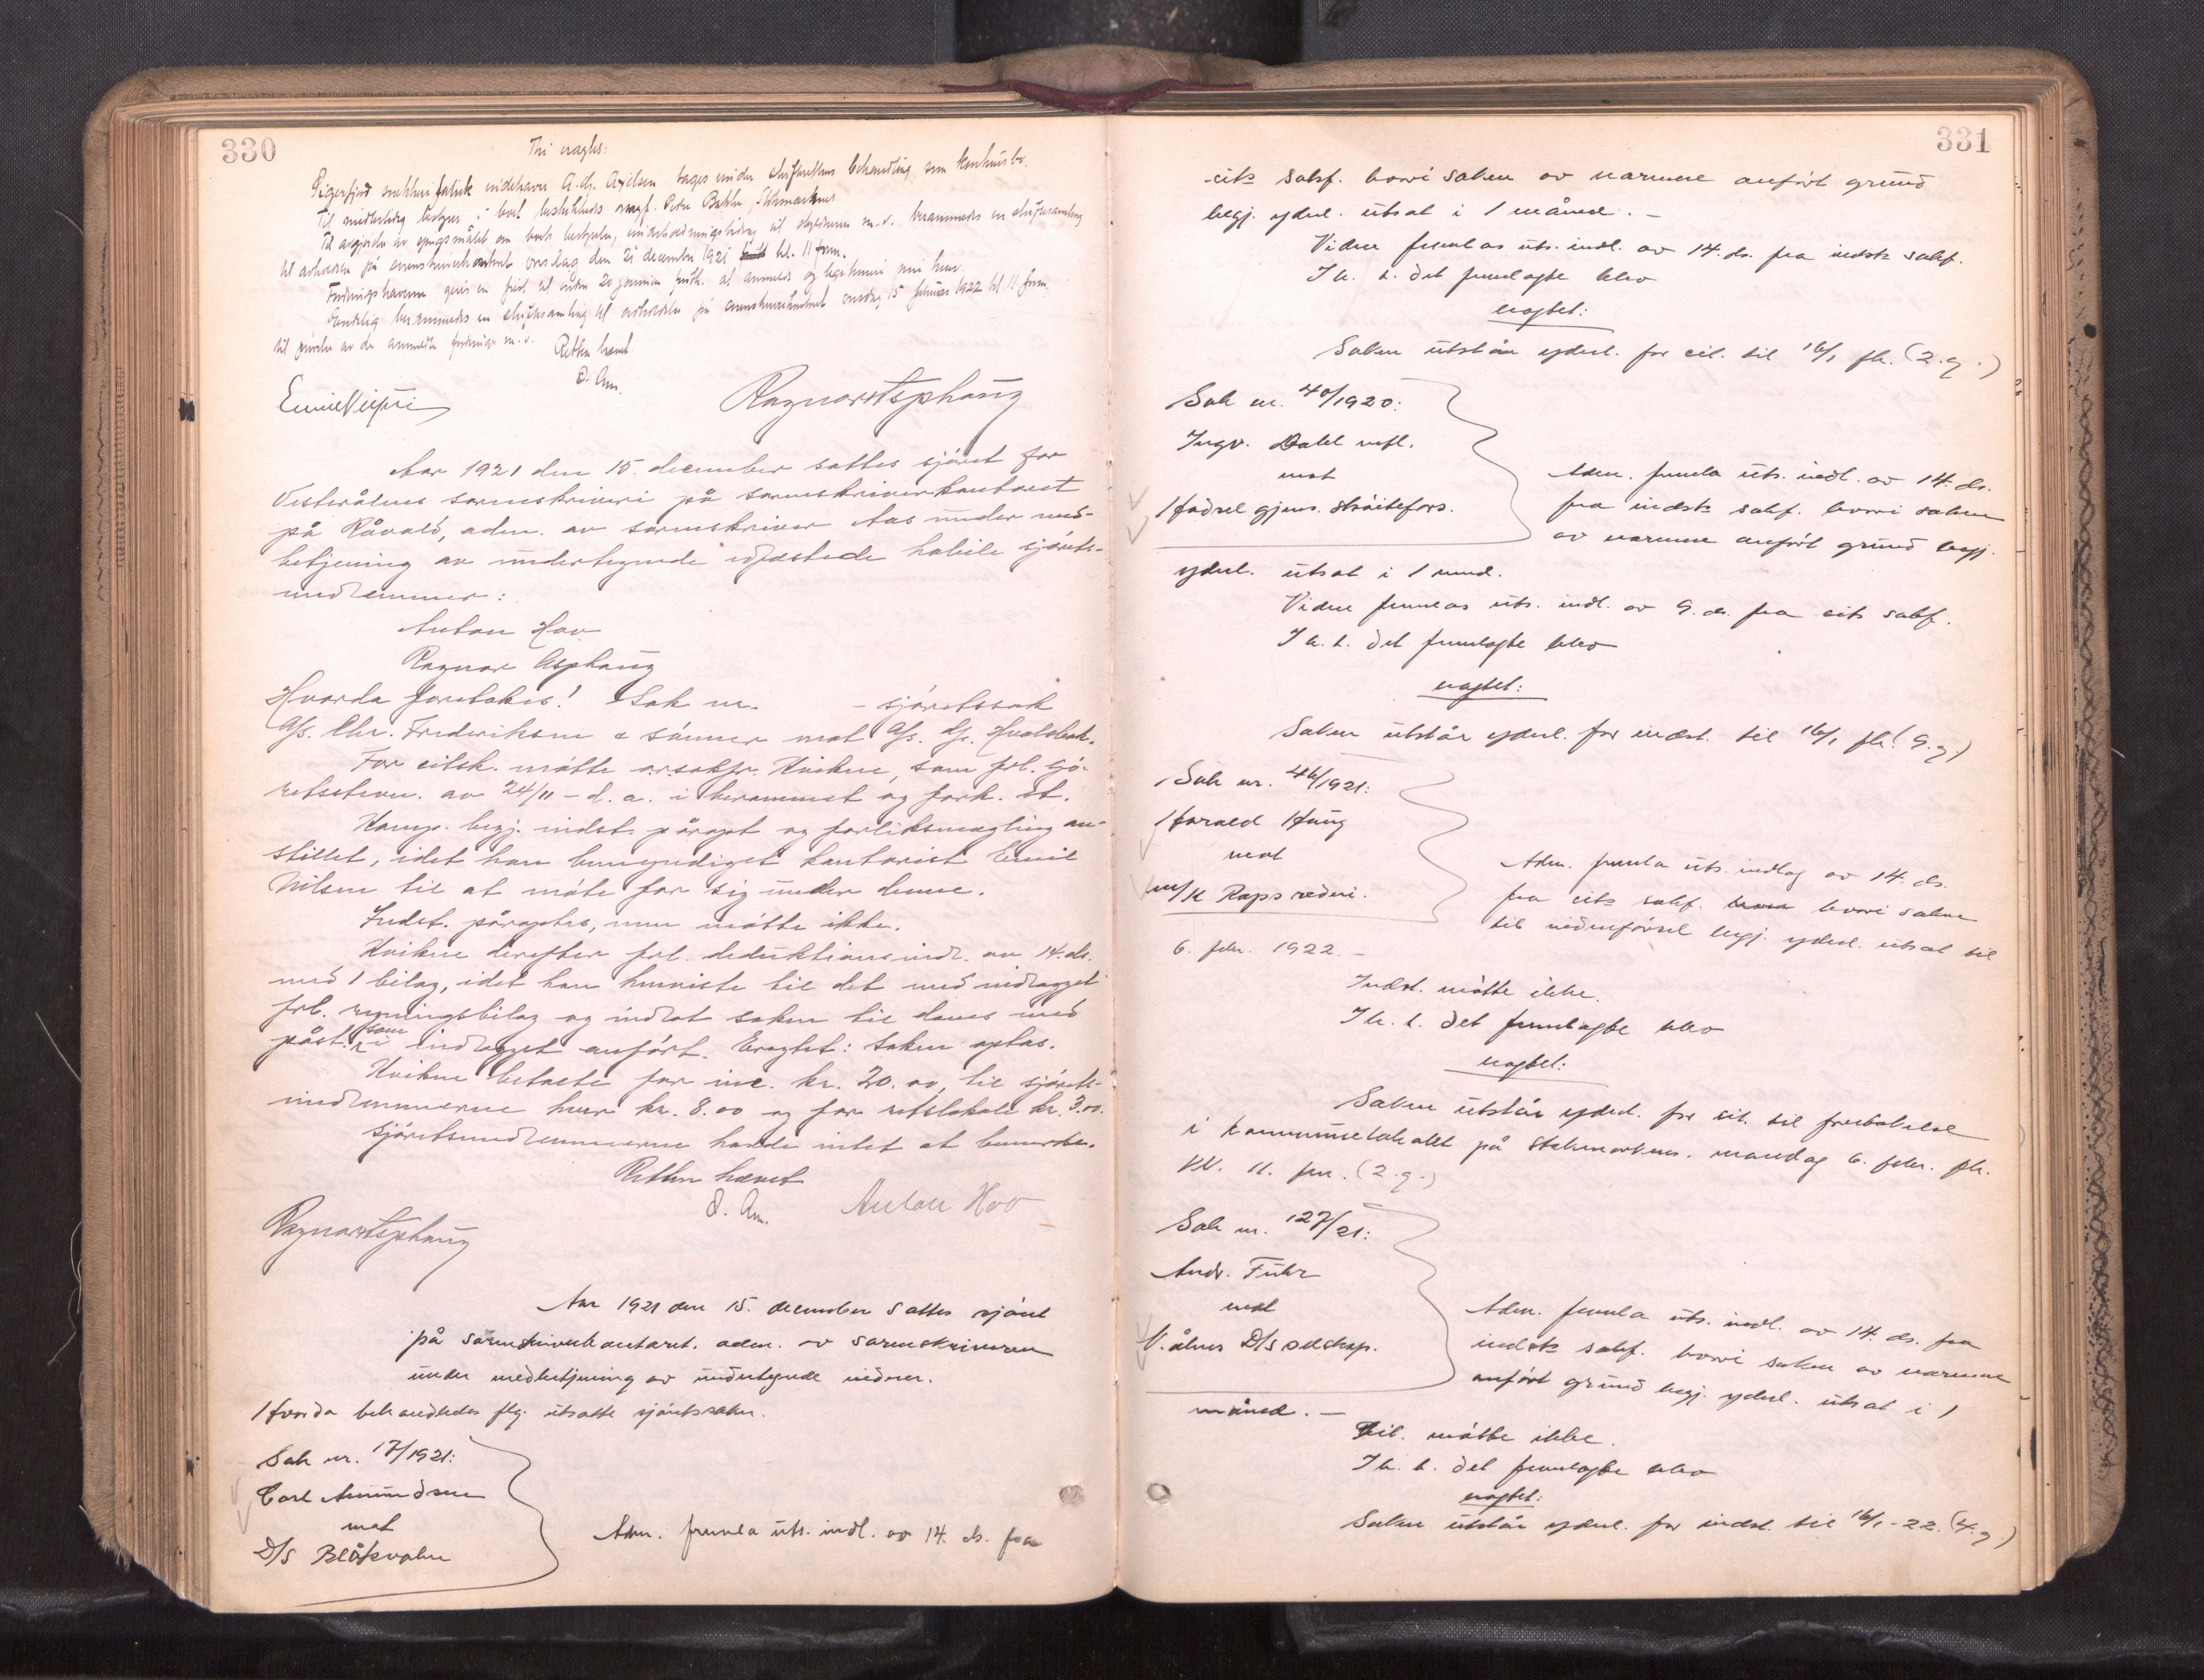 330
Thi eragtes:
Sigerfjord snekkerifabrik indehaver A. Chr. Axelsen tages under skifterettens behandling som konkursbo.
Til midlertidig bestyrer i boet beskikkedes sagf. Peder Bakke, Stokmarknes
Til avgjørelse av spørgsmålet om boets bestyrelse, underholdningsbidrag til skyldneren m.v. berammedes en skiftesamling
til avholdelse på sorenskriverkontoret onsdag den 21 december 1921 kl. 11 form.
Fordringshaverne gives en frist til inden 20 januar førstk. at anmelde og legitimere sine krav.
Samtidig berammedes en skiftesamling til avholdelse på sorenskriverkontoret onsdag 15 februar 1922 kl 11 form.
til prøvelse av de anmeldte fordringer m.v.
Retten hævet.
O. Aas.
Ragnar Asphaug
Aar 1921 den 15. december sattes sjøret for
Vesterålens sorenskriveri på sorenskriverkontoret
på Råvald, adm. av sorenskriver Aas under med-
betjening av undertegnede edfæstede habile sjørets-
medlemmer:
Anton Hov
Ragnar Asphaug
Hvorda foretokes! Sak nr. - sjøretssak
A/s. Chr. Frederiksen & sønner mot A/s. D/s. Hvalsbak.
For citsk. møtte o.r.sakfr. Kvikne, som frl. sjø-
retsstevn. av 24/11 - d. a. i berammet og fork. st.
Komp. begj. indst. påropt og forliksmægling an-
stillet, idet han bemyndiget kontorist Emil
Nilsen til at møte for sig under denne.
Indst. påroptes, men møtte ikke.
Kvikne derefter frl. deduktionsindl. av 14. ds.
med 1 bilag, idet han henviste til det med indlægget
frl. regningsbilag og indlot saken til doms med
påst. som i indlægget anført. Eragtet: Saken optas.
Kvikne betalte for inc. kr. 20.00, til sjørets-
medlemmerne hver kr. 8.00 og for retslokale kr. 3.00.
Sjøretsmedlemmerne havde intet at bemerke.
Retten hævet
O. Aas. Anton Hov
Ragnar Asphaug
Aar 1921 den 15. december sattes sjøret
på sorenskriverkontoret. adm. av sorenskriveren
under medbetjening av undertegnede vidner.
Hvorda behandledes flg. utsatte sjøretssaker.
Sak nr. 17/1921:
Carl Amundsen
mot
D/S Blåkvalen
Adm. fremla uts. indl. av 14. ds. fra
331
cits sakf. hvori saken av nærmere anført grund
begj. yderl. utsat i 1 måned. -
Videre fremlas uts. indl. av 14. ds. fra indsts sakf.
I h. t. det fremlagte blev
eragtet:
Saken utstår yderl. for cit. til 16/1 fk. (2. g.)
Sak nr. 40/1920:
Ingv. Dahl mfl.
mot
Hadsel gjens. skøitefors.
Adm. fremla uts. indl. av 14. ds.
fra indsts sakf. hvori saken
av nærmere anført grund begj.
yderl. utsat i 1 mnd.
Videre fremlas uts. indl. av 9. ds. fra cits sakf.
I h. t. det fremlagte blev
eragtet:
Saken utstår yderl. for indst. til 16/1 fk. (9. g.)
Sak nr. 46/1921:
Harald Haug
mot
m/k Raps rederi.
Adm. fremla uts. indlag av 14. ds.
fra cits sakf. hvori saken
til vidneførsel begj. yderl. utsat til
6. febr. 1922. -
Indst. møtte ikke.
I h. t. det fremlagte blev
eragtet:
Saken utstår yderl. for cit. til foretakelse
i kommunelokalet på Stokmarknes. mandag 6. febr. fk.
kl. 11. fm. (2. g.)
Sak nr. 127/21:
Andr. Führ
mot
V.ålens D/S selskap.
Adm. fremla uts. indl. av 14. ds. fra
indsts sakf. hvori saken av nærmere
anført grund begj. yderl. utsat i 1
måned. -
Cit. møtte ikke.
I h. t. det fremlagte blev
eragtet:
Saken utstår yderl. for indst. til 16/1-22. (4. g.)